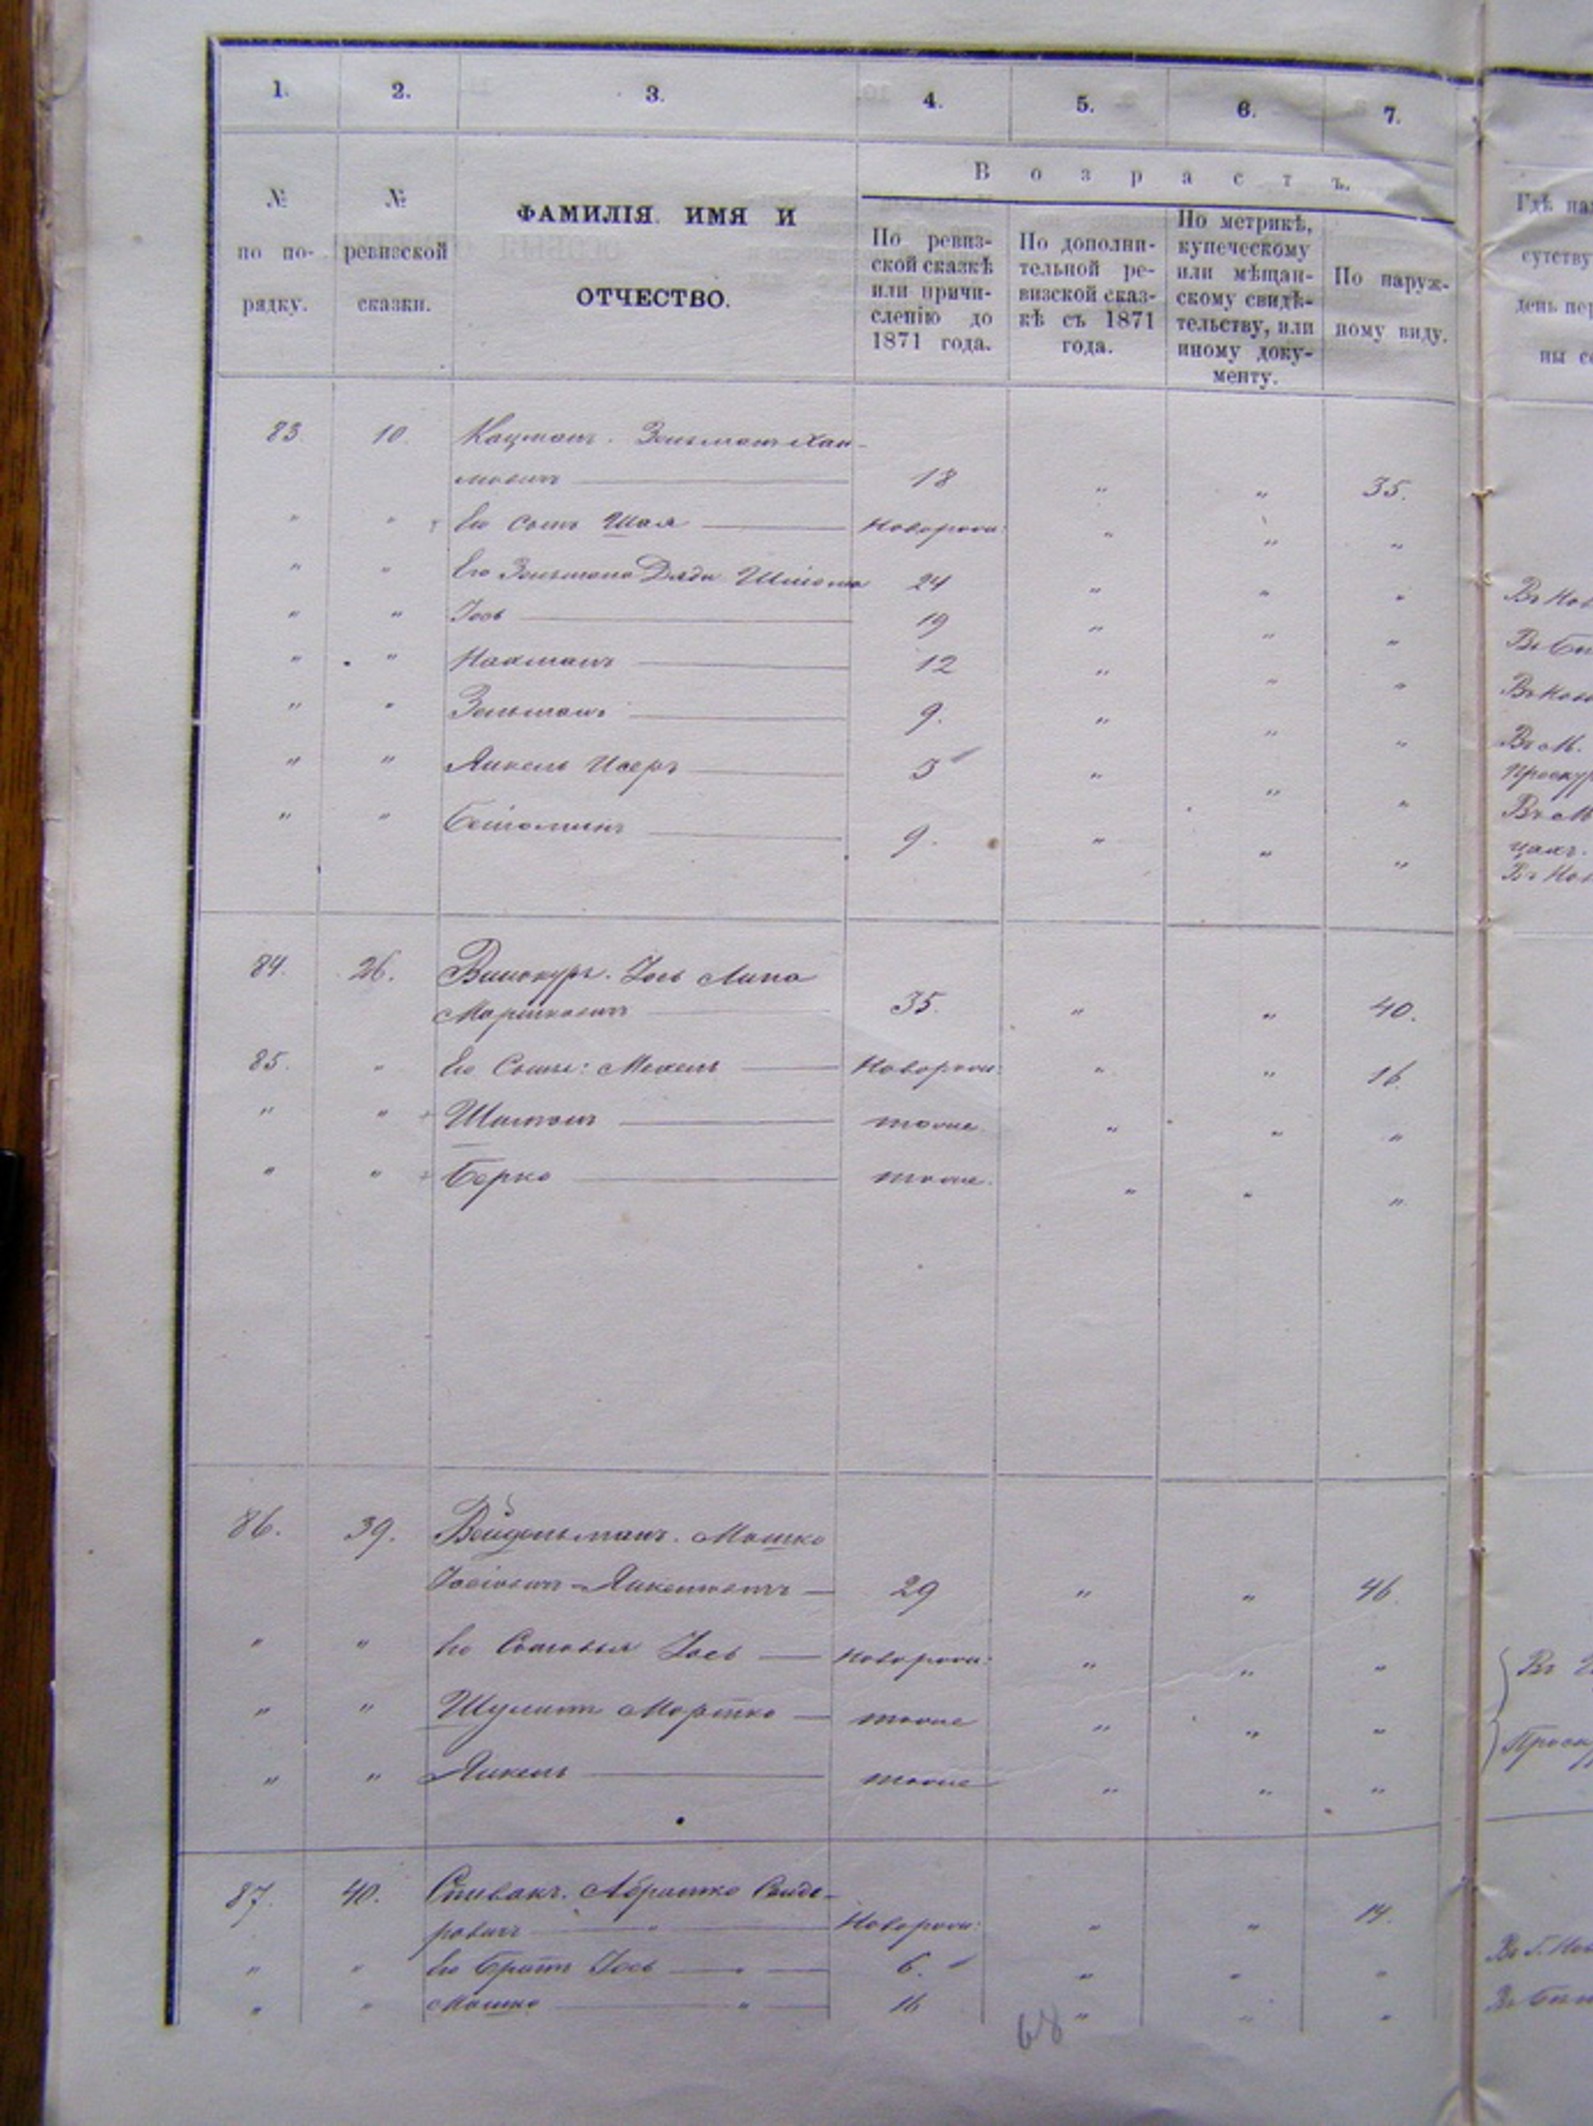 1. 2. 3. 4. 5. 6. 7.
В о з р а с т ъ.
№ по по-рядку.
№ ревизской сказки.
ФАМИЛІЯ ИМЯ И
ОТЧЕСТВО.
По ревиз-
ской сказкѣ
или причи-
сленію до
1871 года.
По дополни-
тельной ре-
визской сказ-
кѣ съ 1871
года.
По метрикѣ,
купеческому
или мѣщан-
скому свидѣ-
тельству, или
иному доку-
менту.
По наруж-
ному виду.
83 10. Кацманъ. Зельманъ Хаи-
мовичъ 18 " " 35.
" " Его Сынъ Шая Новорож: " " "
" " Его Зельмана Дяди Шлiома 24 " " "
" " Іось 19 " " "
" " Нахманъ 12 " " "
" " Зельманъ 9. " " "
" " Янкель Исеръ 3 " " "
" " Беніоминъ 9. " " "
84. 26. Винокуръ. Іось Липа
Маріиковичъ 35. " " 40.
85. " Его Сыны: Мехель Новорож: " " 16.
" " Шитонъ тоже " " "
" " Берко тоже. " " "
86. 39. Вейдельманъ. Мошко
Іосіовичъ-Янкелювичъ 29 " " 46.
" " Его Сыновья Іось Новорож: " " "
" " Шулимъ Мортко тоже " " "
" " Янкель тоже " " "
87. 40. Спивакъ. Абрамко Сенде-
ровичъ " Новорож: " " 14.
" " Его Братъ Іось " 6. " " "
" " Мошко " 16 " " "
68
Гдѣ
сутству
день пер
Въ
Въ
Въ
Въ М.
Проскур
Въ М
цахъ.
Въ
Въ
Проск
Въ Г. Нов
Въ